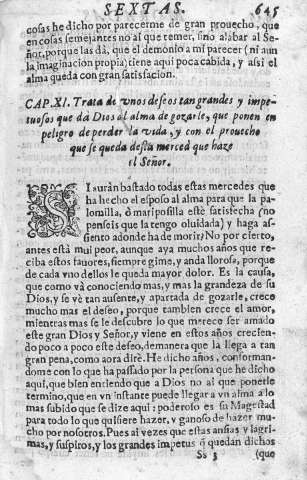 SEXTAS. 645
cosas he dicho por parecerme de gran prouecho, que
en cosas semejantes no ai que temer, sino alabar al Se-
ñor, porque las dà, que el demonio a mi parecer (ni aun
la imaginacion propia) tiene aqui poca cabida, y assi el
alma queda con gran satisfacion.
CAP. XI. Trata de vnos deseos tan grandes y impe-
tuosos que da Dios al alma de gozarle, que ponen en
peligro de perder la vida, y con el prouecho
que se queda desta merced que haze
el Señor.
SI auràn bastado todas estas mercedes que
ha hecho el esposo al alma para que la pa-
lomilla, ò mariposilla estè satisfecha (no
penseis que la tengo oluidada) y haga as-
siento adonde ha de morir? No por cierto,
antes està mui peor, aunque aya muchos años que re-
ciba estos fauores, siempre gime, y anda llorosa, porque
de cada vno dellos le queda mayor dolor. Es la causa,
que como và conociendo mas, y mas la grandeza de su
Dios, y se vè tan ausente, y apartada de gozarle, crece
mucho mas el deseo, porque tambien crece el amor,
mientras mas se le descubre lo que merece ser amado
este gran Dios y Señor, y viene en estos años crecien-
do poco a poco este deseo, demanera que la llega a tan
gran pena, como aora dirè. He dicho años, conforman-
dome con lo que ha passado por la persona que he dicho
aqui, que bien entiendo que a Dios no ai que ponerle
termino, que en vn instante puede llegar a vn alma a lo
mas subido que se dize aqui: poderoso es su Magestad
para todo lo que quisiere hazer, y ganoso de hazer mu-
cho por nosotros. Pues ai vezes que estas ansias y lagri-
mas, y suspiros, y los grandes impetus q̃ quedan dichos
Ss 3 (que